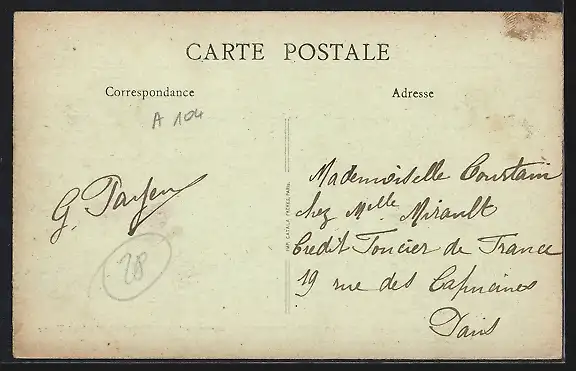 CARTE POSTALE
Correspondance
Adresse
A 104
G.
28
IMP. CATALA FRÈRES, PARIS.
Mademoiselle Courtain
chez Melle Mirault
Crédit Foncier de France
19 rue des Capucines
Paris